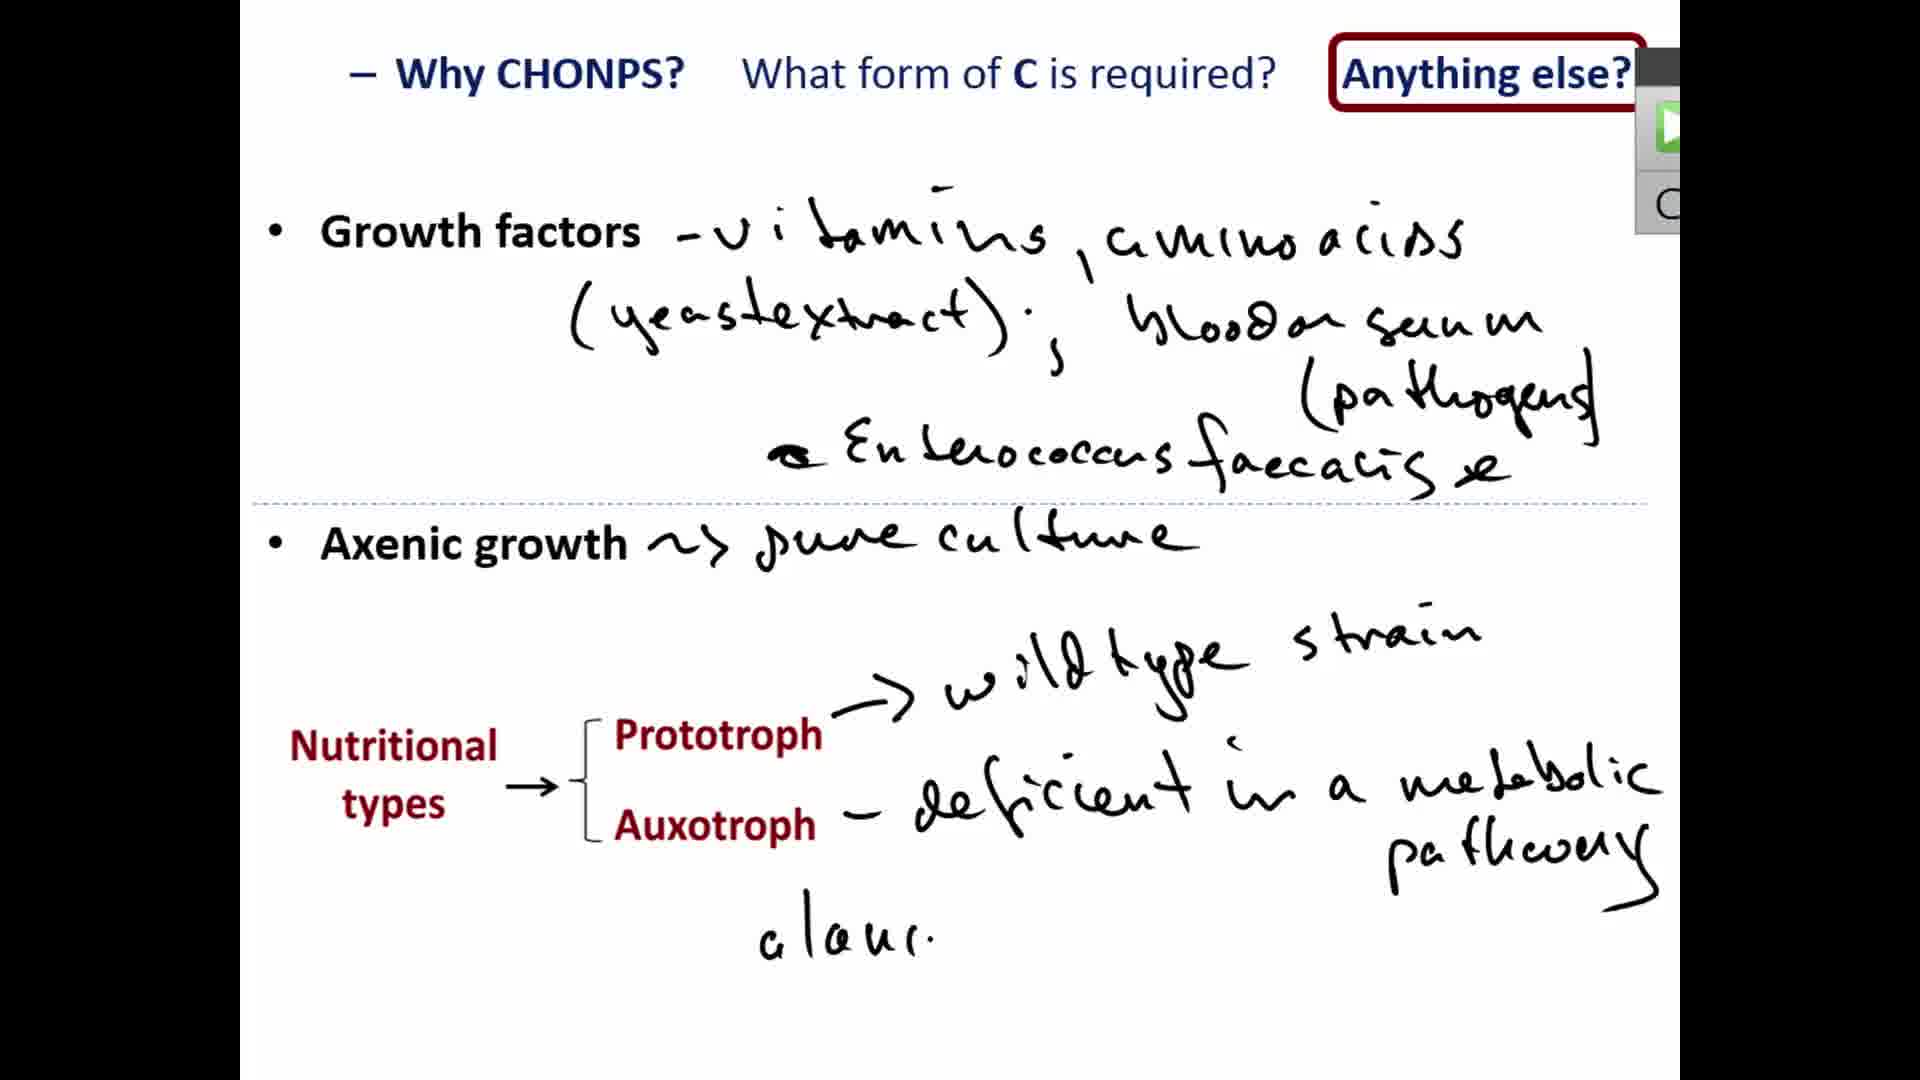 – Why CHONPS? What form of C is required? Anything else?
• Growth factors - vitamins, amino acids
(yeast extract); blood or serum
(pathogens)
Enterococcus faecalis
• Axenic growth ~> pure culture
Prototroph -> wild type strain
Nutritional types →
Auxotroph - deficient in a metabolic
pathway